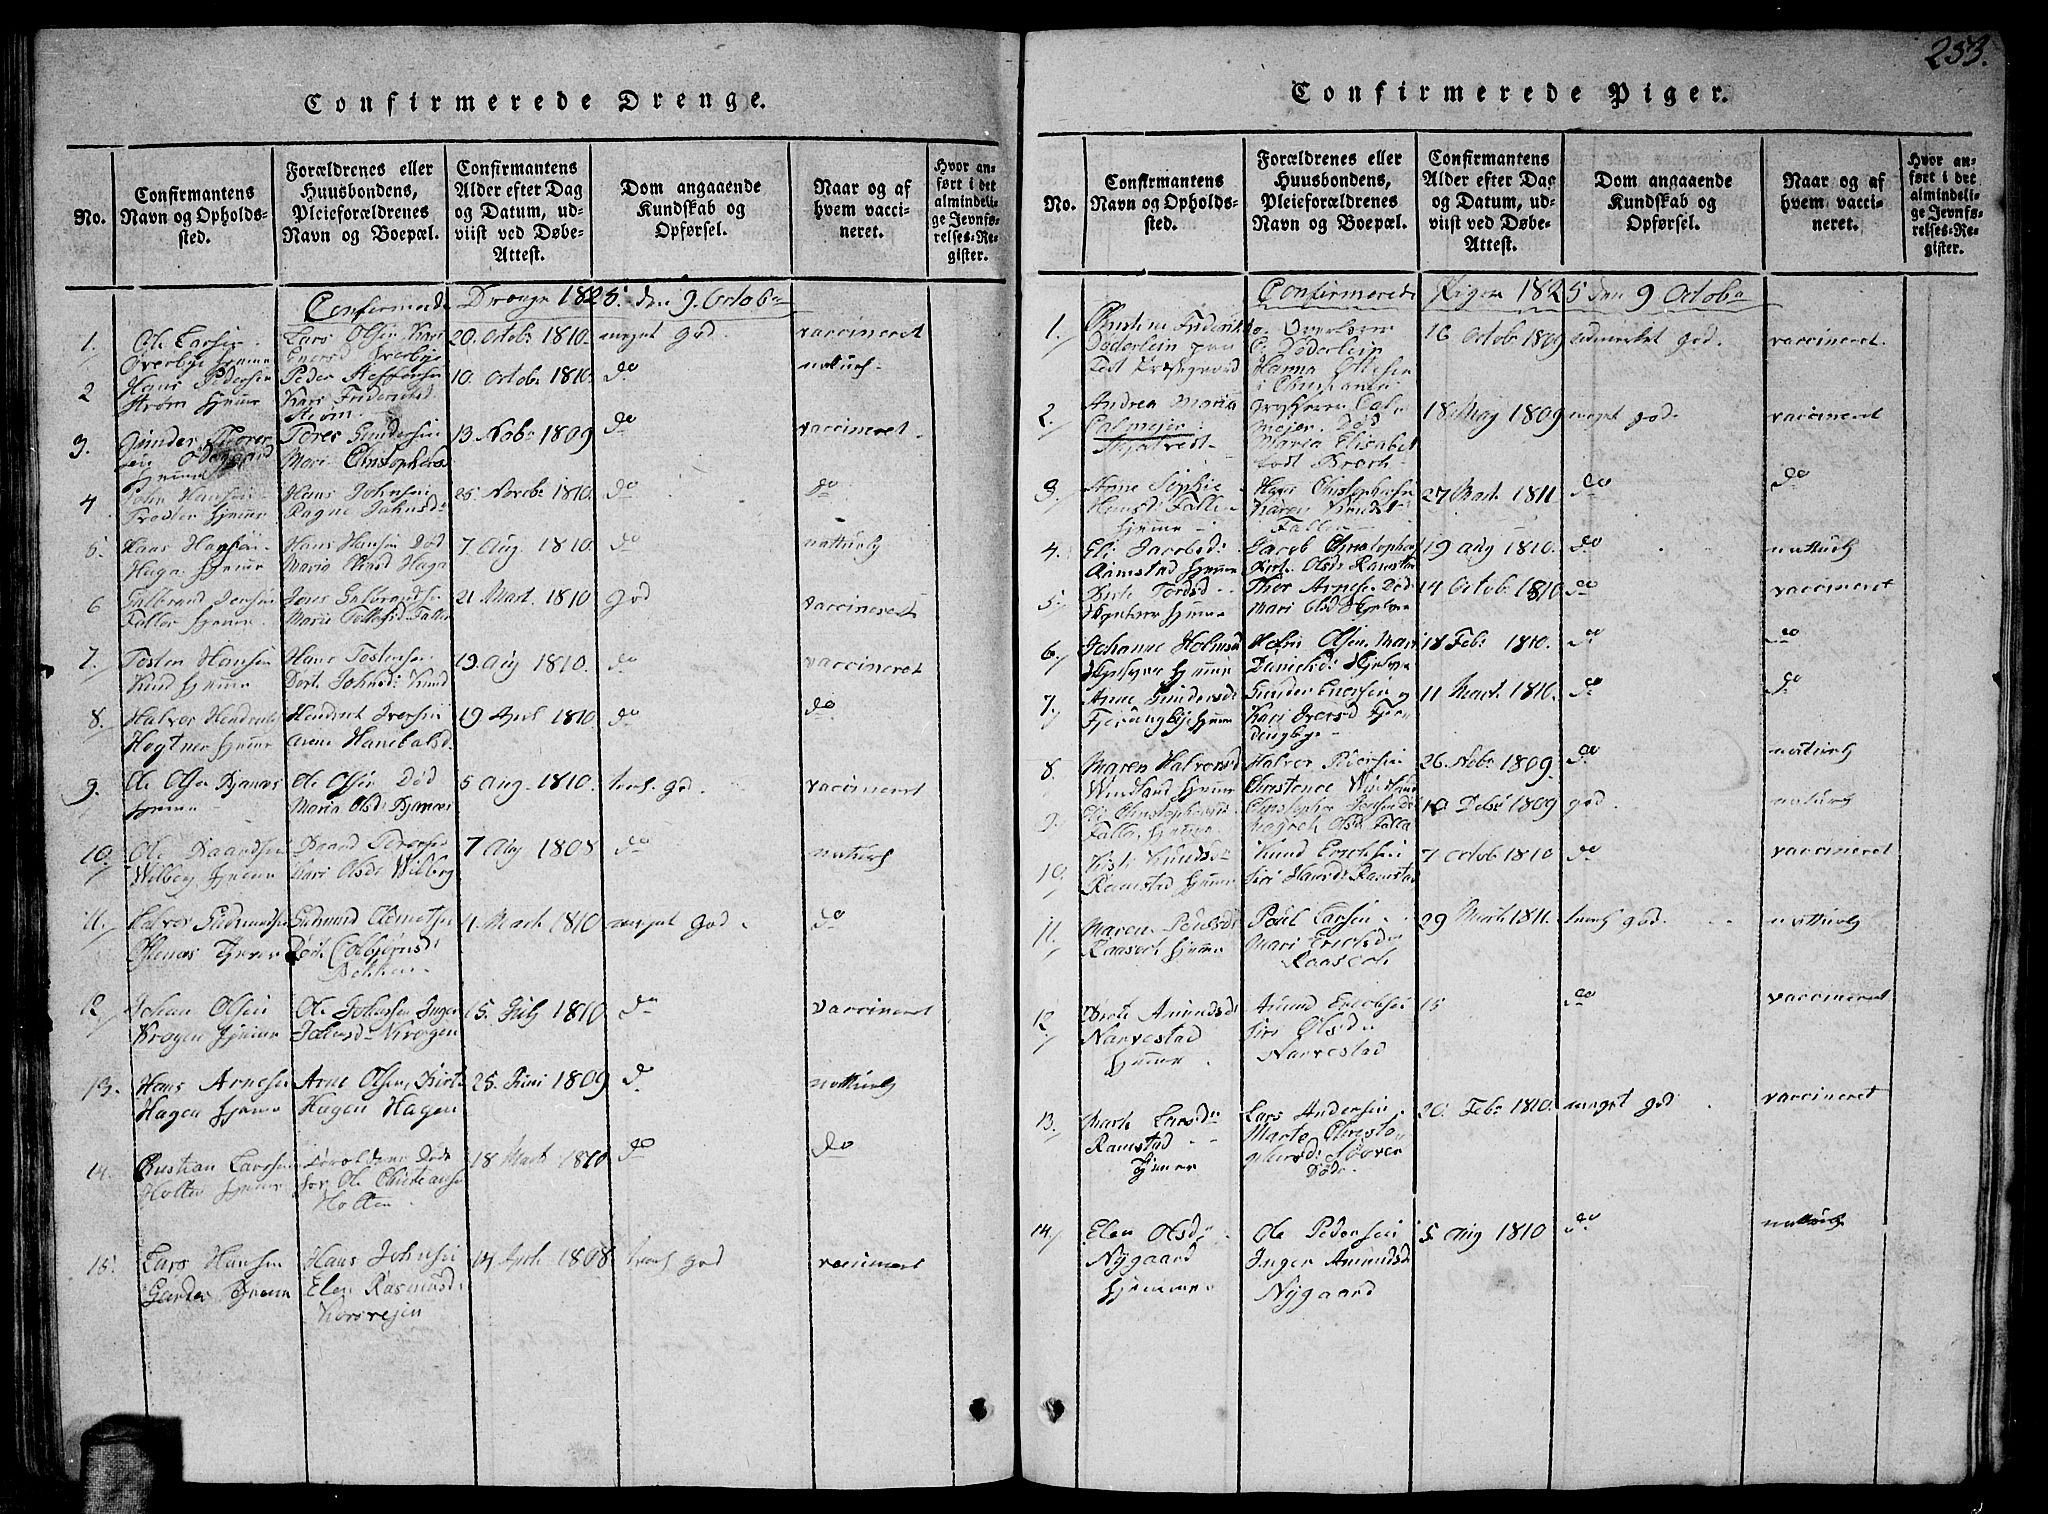 253.
Confirmerede Drenge.
No.
Confirmantens
Navn og Opholds-
sted.
Forældrenes eller
Huusbondens,
Pleieforældrenes
Navn og Boepæl.
Confirmantens
Alder efter Dag
og Datum, ud-
viist ved Døbe-
Attest.
Dom angaaende
Kundskab og
Opførsel.
Naar og af
hvem vacci-
neret.
Hvor an-
ført i det
almindeli-
ge Jevnfø-
relses-Re-
gister.
Confirmerede Drenge 1825 den 9. Octobr
1.
Ole Larsen
Overbye hjeme
Lars Olsen Kari
Overbye
20 Octobr 1810.
meget god
vaccineret
2
Hans Pedersen
Strøm hjeme
Peder Steffensen
Kari
Strøm
10 Octobr 1810.
do
naturl.
3.
Gunder Torer
sen Ødegaard
hjeme
Tores Gundersen
Mari Christophersd
13 Nobr 1809
do
vaccineret
4
John Hansen
Troster hjeme
Hans Johnsen
Ragne Johnsd
25 Novbr 1810.
do
do
5
Hans Hansen
Haga hjeme
Hans Hansen Død
Maria Haga
7 Aug 1810.
do
natturly
6
Gulbrand Jensen
Falla hjeme
Jens Gulbrandse
Marie Falla
21 Mart. 1810
god
vaccineret
7.
Tosten Hansen
hjeme
Hans Tostensen
Dort. Johnsd:
19 Aug 1810.
do
vaccineret
8
Halvor Hendrichs
Hogtner hjeme
Hendrick Iversen
Anne Hanebalsd.
19 Apr. 1810
do
do
9.
Ole Olsen Bjanæs
hjeme
Ole Olsen Død
Maria Olsd Bjanæs
5 Aug. 1810.
temt. god.
vaccineret
10.
Ole Baardsen
Wilberg hjeme
Baard Toresen
Kari Olsd Wilberg
7 Aug 1808
do
naturl
11.
Halvor Gudmundsen
Stenæs hjeme
Gudmund Clemetsen
Dort. Colbjørnsd
Bekken
1. Mart 1810
meget god.
do
12
Johan Olsen
Krogen hjeme
Ole Johnsen Inger
Krogen
15. July 1810
do
vaccineret
13.
Hans Arnesen
Hagen hjeme
Arne Olsen, Birte
Hagen Hagen
25. Juni 1809
do
natturly
14.
Christian Larsen
Holter hjeme
Forældrene Døde
for. Ole Christiansen
Holter
18 Mart 1810
do
do
15.
Lars Hansen
Garder hjeme
Hans Johnsen
Elen Rasmusd:
Korsvejen
14 Apr. 1808
temt god
vaccineret
Confirmerede Piger.
No.
Confirmantens
Navn og Opholds-
sted.
Forældrenes eller
Huusbondens,
Pleieforældrenes
Navn og Boepæl.
Confirmantens
Alder efter Dag
og Datum, ud-
viist ved Døbe-
Attest.
Dom angaaende
Kundskab og
Opførsel.
Naar og af
hvem vacci-
neret.
Hvor an-
ført i det
almindeli-
ge Jevnfø-
relses-Re-
gister.
Confirmerede Piger 1825 den 9 Octobr
1.
Christine Friderikke
Døderlein paa
Fet Præstegaard
Døderlein
Hanna
i Christiania
16 Octobr 1809
udmerket god.
vaccineret.
2.
Andrea Maria
Calmejer
Cal
mejer. Død
Maria Elisabet
født
18 May 1809
meget god.
vaccineret
3
Anne Sophie
Hansd: Falla
hjeme
Hans Christophersen
Karen Knudsd
Falla
27 Mart 1811
do
do
4.
Eli Jacobsd:
Ramstad hjeme
Jacob Christophers
Birte Olsd Ramstad
19 Aug 1810.
do
natturl
5.
Birte Tordsd
hjeme
Thor Arnesen Død
Mari Olsd
14 Octobr 1810
do
vaccineret
6.
Johanne Holmsd
hjeme
Holm Olsen, Mari
Danielsd:
18 Febr 1810.
do
do
7.
Anne Gundersd:
Fjerdingbye hjeme
Gunder Enersen
Kari Iversd Fjer
dingbye
11 Mart. 1810.
do
do
8.
Maren Halvorsd
hjeme
Halvor Pedersen
Christence
26. Nobr 1809.
do
natturly
9
Eli Christophersd
Falla, hjeme
Christopher Jensen Død
Olsd Falla
10 Debr 1809
god
naturly
10
Knudsd:
Ramstad hjeme
Knud Erichsen
Siri Hansd Ramstad
7 Octob 1810
do
vaccineret
11.
Maren Povelsd:
Raasoch hjeme
Povel Larsen
Mari Erichsd
Raasoch
29 Mart. 1811.
temt god.
natturly
12.
Dorte Amundsd:
Narvestad
hjeme
Amund Erichsen
Siri Olsd
Narvestad
15
do
vaccineret
13.
Mart. Larsd
Ramstad
hjeme
Lars Andersen.
Marte Christo
phersd:
Døde.
20. Febr 1810.
meget god
vaccineret
14.
Elen Olsd
Nygaard,
hjemme
Ole Pedersen
Inger Amundsd
Nygaard
5 Aug 1810
do
natturly